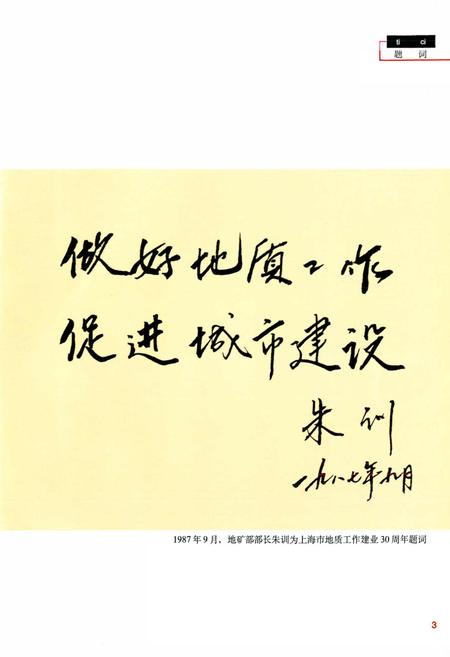 ti ci
题 词
做好地质工作
促进城市建设
朱训
一九八七年九月
1987年9月，地矿部部长朱训为上海市地质工作建业30周年题词
3